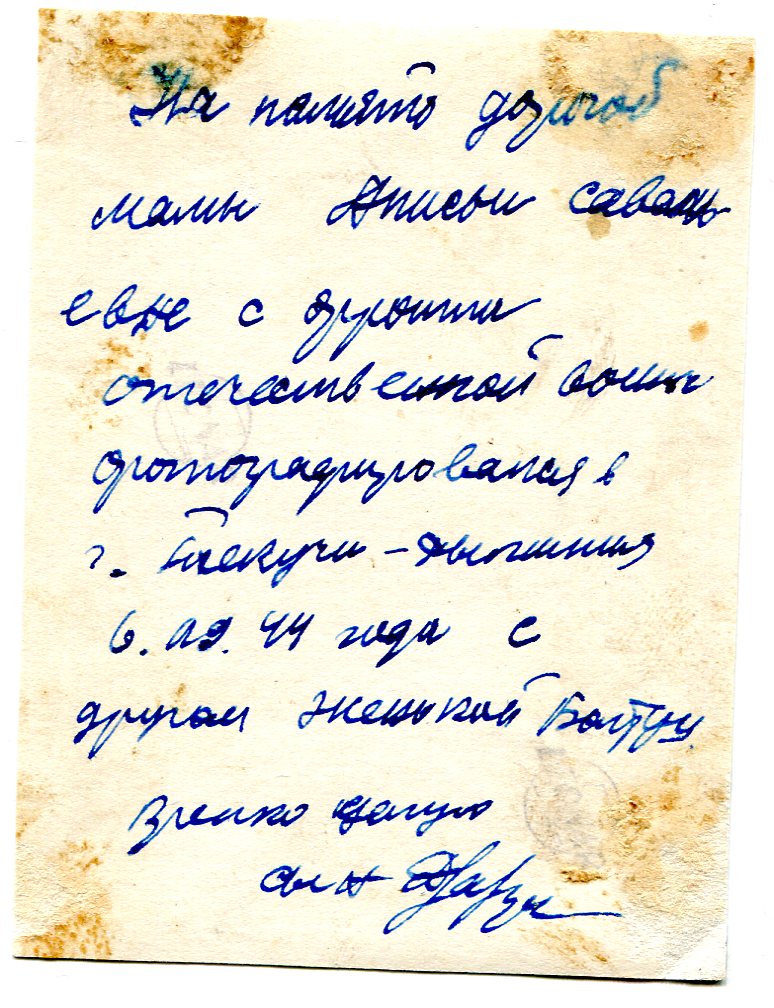 На память дорогой
мамы Анисьи Савель
евне с фронта
отечественной войны
фотографировался в
г. Текучи –
6. 09. 44 года с
другом Женькой
крепко целую
сын